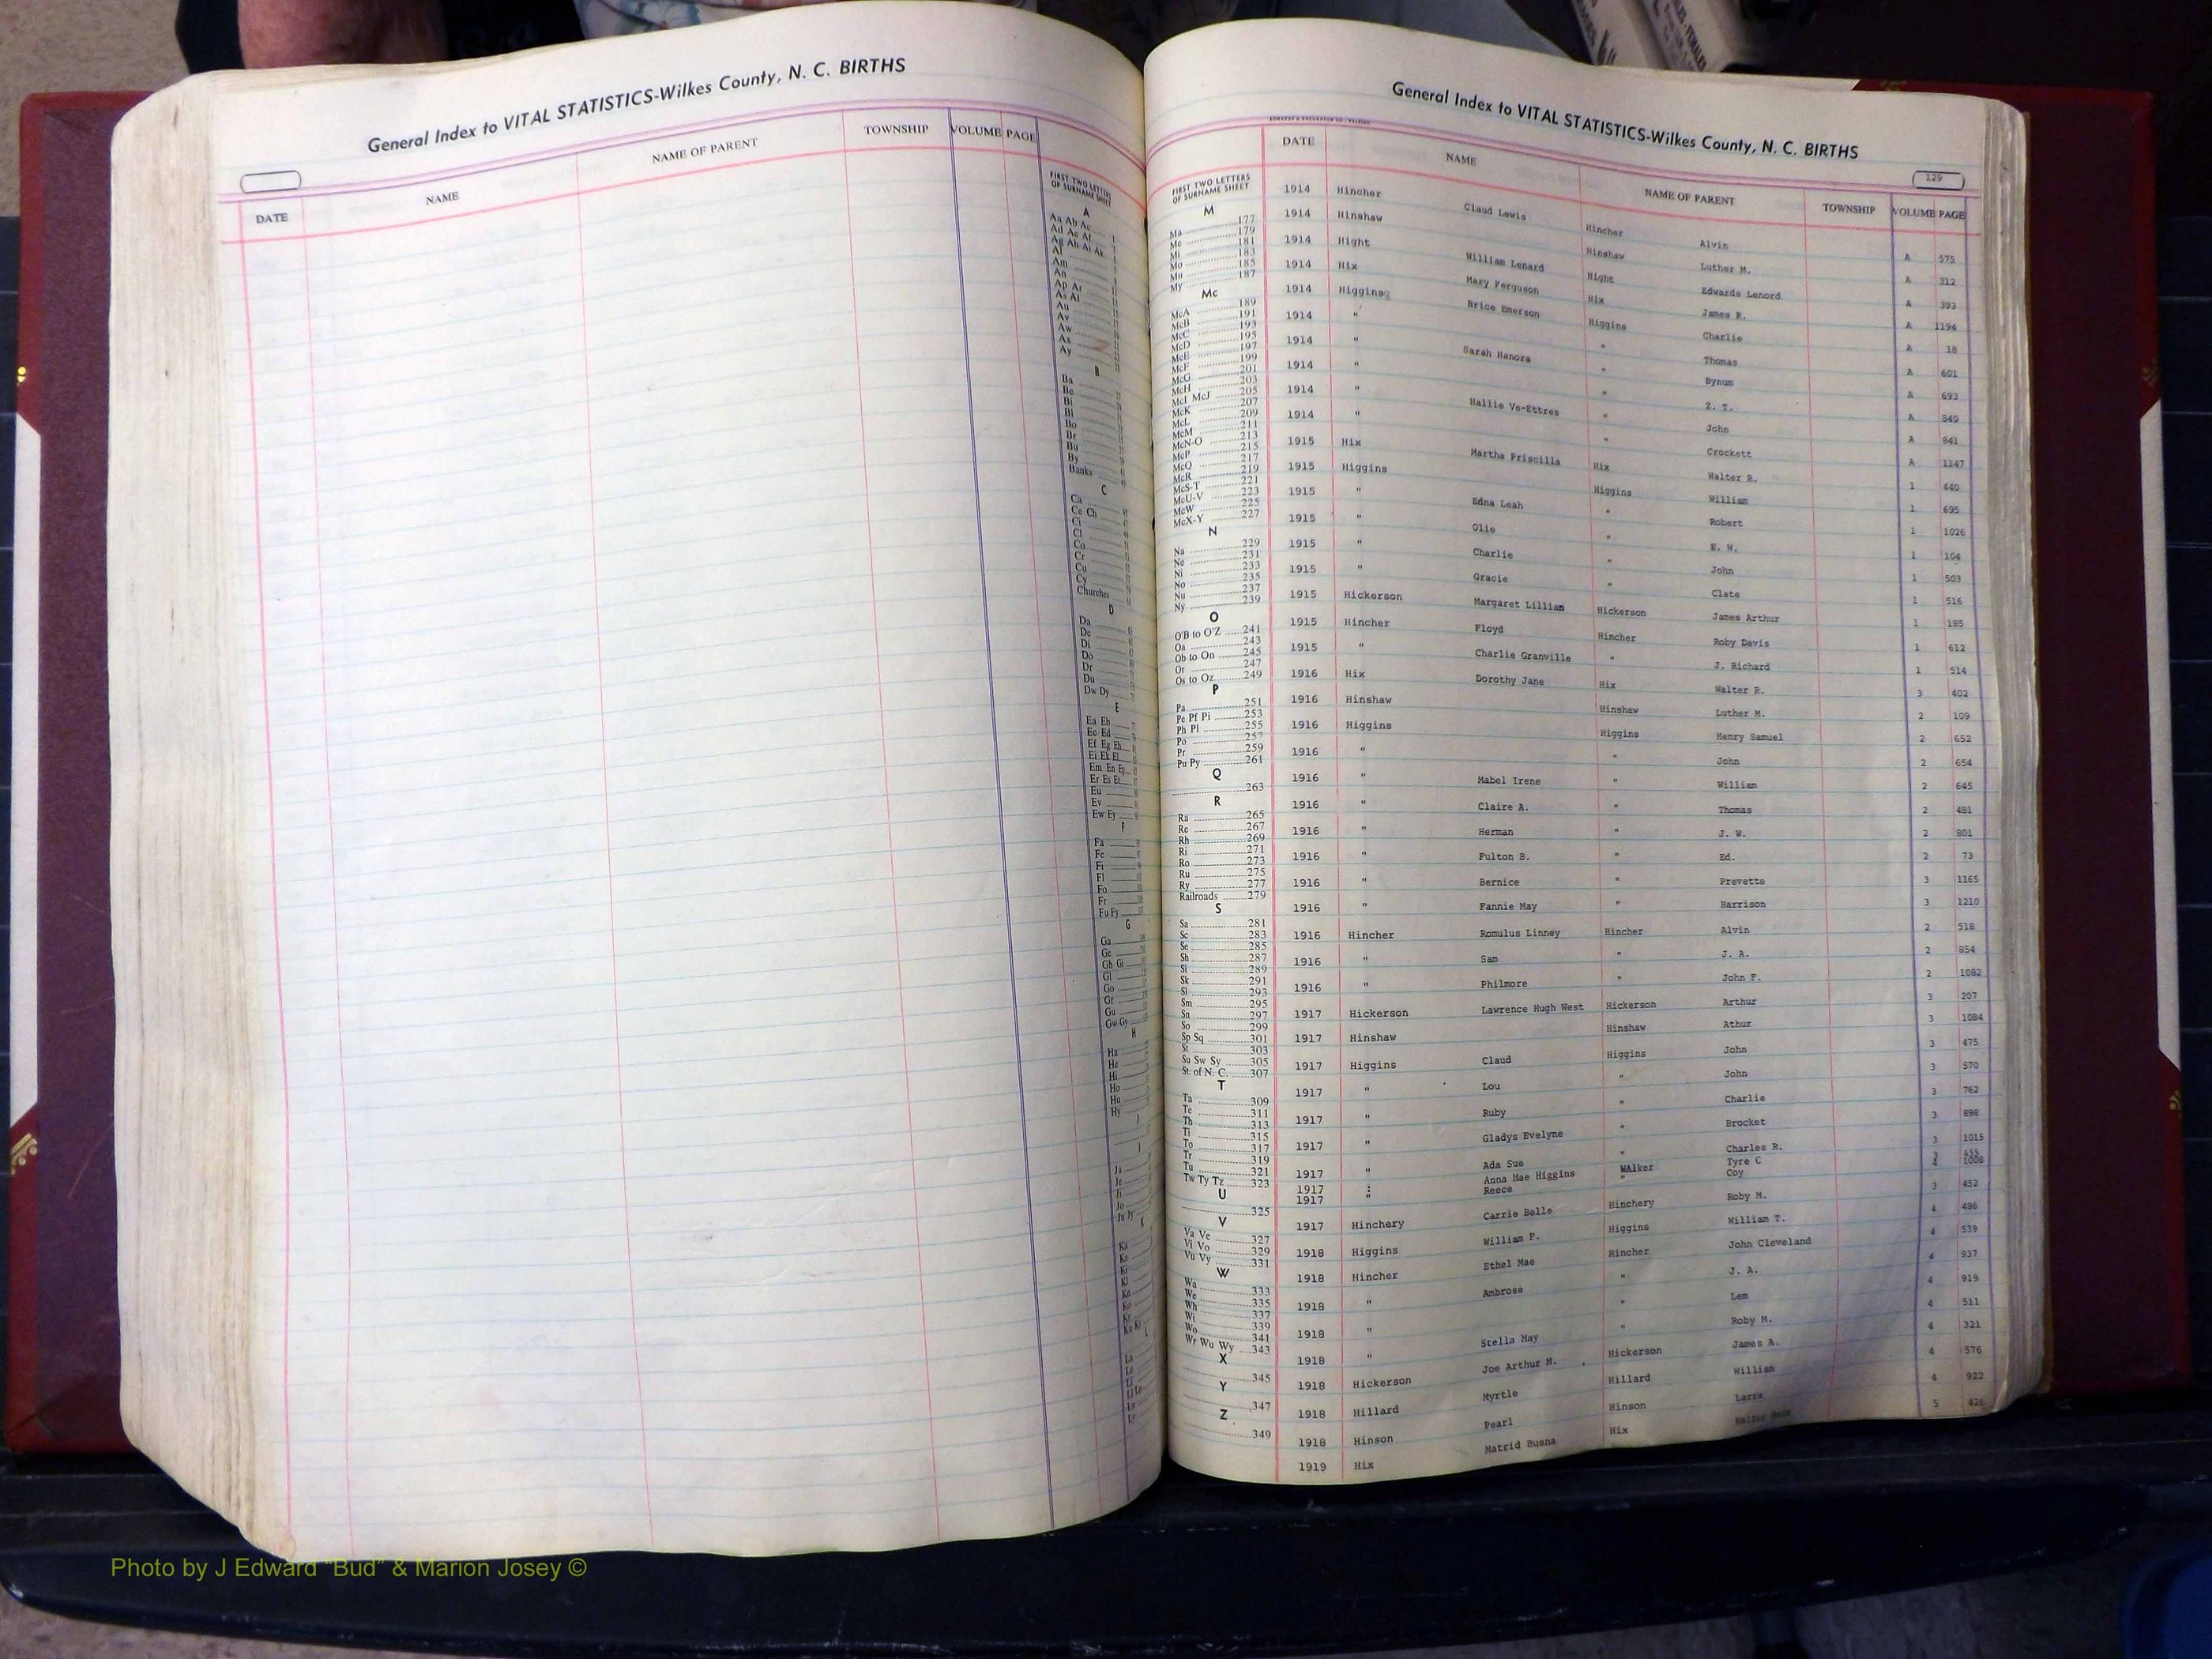 General Index to VITAL STATISTICS-Wilkes County, N. C. BIRTHS
DATE NAME NAME OF PARENT TOWNSHIP VOLUME PAGE
FIRST TWO LETTERS OF SURNAME SHEET
A
Aa Ab Ac
Ad Ae Af
Ag Ah Ai Ak
Al
Am
An
Ap Ar
As At
Au
Av
Aw
Ax
Ay
B
Ba
Be
Bi
Bl
Bo
Br
Bu
By
Banks
C
Ca
Ce Ch
Ci
Cl
Co
Cr
Cu
Cy
Churches
D
Da
De
Di
Do
Dr
Du
Dw Dy
E
Ea Eb
Ec Ed
Ef Eg Eh
Ei Ek El
Em En Ep
Er Es Et
Eu
Ev
Ew Ey
F
Fa
Fe
Fi
Fl
Fo
Fr
Fu Fy
G
Ga
Ge
Gh Gi
Gl
Go
Gr
Gu
Gw Gy
H
Ha
He
Hi
Ho
Hu
Hy
I
J
Ja
Je
Ji
Jo
Ju Jy
K
Ka
Ke
Ki
Kl
Kn
Ko
Kr
Ku Ky
L
La
Le
Li
Ll Lo
Lu
Ly
General Index to VITAL STATISTICS-Wilkes County, N. C. BIRTHS
129
FIRST TWO LETTERS OF SURNAME SHEET
M
Ma 177
Me 179
Mi 181
Mo 183
Mu 185
My 187
Mc
McA 189
McB 191
McC 193
McD 195
McE 197
McF 199
McG 201
McH 203
McI McJ 205
McK 207
McL 209
McM 211
McN-O 213
McP 215
McQ 217
McR 219
McS-T 221
McU-V 223
McW 225
McX-Y 227
N
Na 229
Ne 231
Ni 233
No 235
Nu 237
Ny 239
O
O'B to O'Z 241
Oa 243
Ob to On 245
Or 247
Os to Oz 249
P
Pa 251
Pe Pf Pi 253
Ph Pl 255
Po 257
Pr 259
Pu Py 261
Q
263
R
Ra 265
Re 267
Rh 269
Ri 271
Ro 273
Ru 275
Ry 277
Railroads 279
S
Sa 281
Sc 283
Se 285
Sh 287
Si 289
Sk 291
Sl 293
Sm 295
Sn 297
So 299
Sp Sq 301
St 303
Su Sw Sy 305
St. of N. C. 307
T
Ta 309
Te 311
Th 313
Ti 315
To 317
Tr 319
Tu 321
Tw Ty Tz 323
U
325
V
Va Ve 327
Vi Vo 329
Vu Vy 331
W
Wa 333
We 335
Wh 337
Wi 339
Wo 341
Wr Wu Wy 343
X
345
Y
347
Z
349
DATE NAME NAME OF PARENT TOWNSHIP VOLUME PAGE
1914 Hincher Claud Lewis Hincher Alvin A 575
1914 Hinshaw Hinshaw Luther M. A 312
1914 Hight William Lenard Hight Edwards Lenord A 393
1914 Hix Mary Ferguson Hix James R. A 1194
1914 Higgins Brice Emerson Higgins Charlie A 18
1914 " " Thomas A 601
1914 " Sarah Hanora " Bynum A 693
1914 " " Z. T. A 840
1914 " Hallie Ve-Ettres " John A 841
1914 " " Crockett A 1147
1915 Hix Martha Priscilla Hix Walter R. 1 440
1915 Higgins Higgins William 1 695
1915 " Edna Leah " Robert 1 1026
1915 " Olie " E. W. 1 104
1915 " Charlie " John 1 503
1915 " Gracie " Clate 1 516
1915 Hickerson Margaret Lillian Hickerson James Arthur 1 185
1915 Hincher Floyd Hincher Roby Davis 1 612
1915 " Charlie Granville " J. Richard 1 514
1916 Hix Dorothy Jane Hix Walter R. 3 402
1916 Hinshaw Hinshaw Luther M. 2 109
1916 Higgins Higgins Henry Samuel 2 652
1916 " " John 2 654
1916 " Mabel Irene " William 2 645
1916 " Claire A. " Thomas 2 481
1916 " Herman " J. W. 2 801
1916 " Fulton B. " Ed. 2 73
1916 " Bernice " Prevette 3 1165
1916 " Fannie May " Harrison 3 1210
1916 Hincher Romulus Linney Hincher Alvin 2 518
1916 " Sam " J. A. 2 854
1916 " Philmore " John F. 2 1082
1917 Hickerson Lawrence Hugh West Hickerson Arthur 3 207
1917 Hinshaw Hinshaw Athur 3 1084
1917 Higgins Claud Higgins John 3 475
1917 " Lou " John 3 570
1917 " Ruby " Charlie 3 762
1917 " Gladys Evelyne " Brocket 3 898
1917 " Ada Sue " Charles R. 3 1015
1917 : Anna Mae Higgins WAlker Tyre C 3 455
1917 " Reece " Coy 4 1008
1917 Hinchery Carrie Belle Hinchery Roby M. 3 452
1918 Higgins William F. Higgins William T. 4 486
1918 Hincher Ethel Mae Hincher John Cleveland 4 539
1918 " Ambrose " J. A. 4 937
1918 " " Lem 4 919
1918 " Stella May " Roby M. 4 511
1918 Hickerson Joe Arthur M. Hickerson James A. 4 321
1918 Hillard Myrtle Hillard William 4 576
1918 Hinson Pearl Hinson Larra 4 922
1919 Hix Matrid Buena Hix Walter 5 426
Photo by J Edward "Bud" & Marion Josey ©